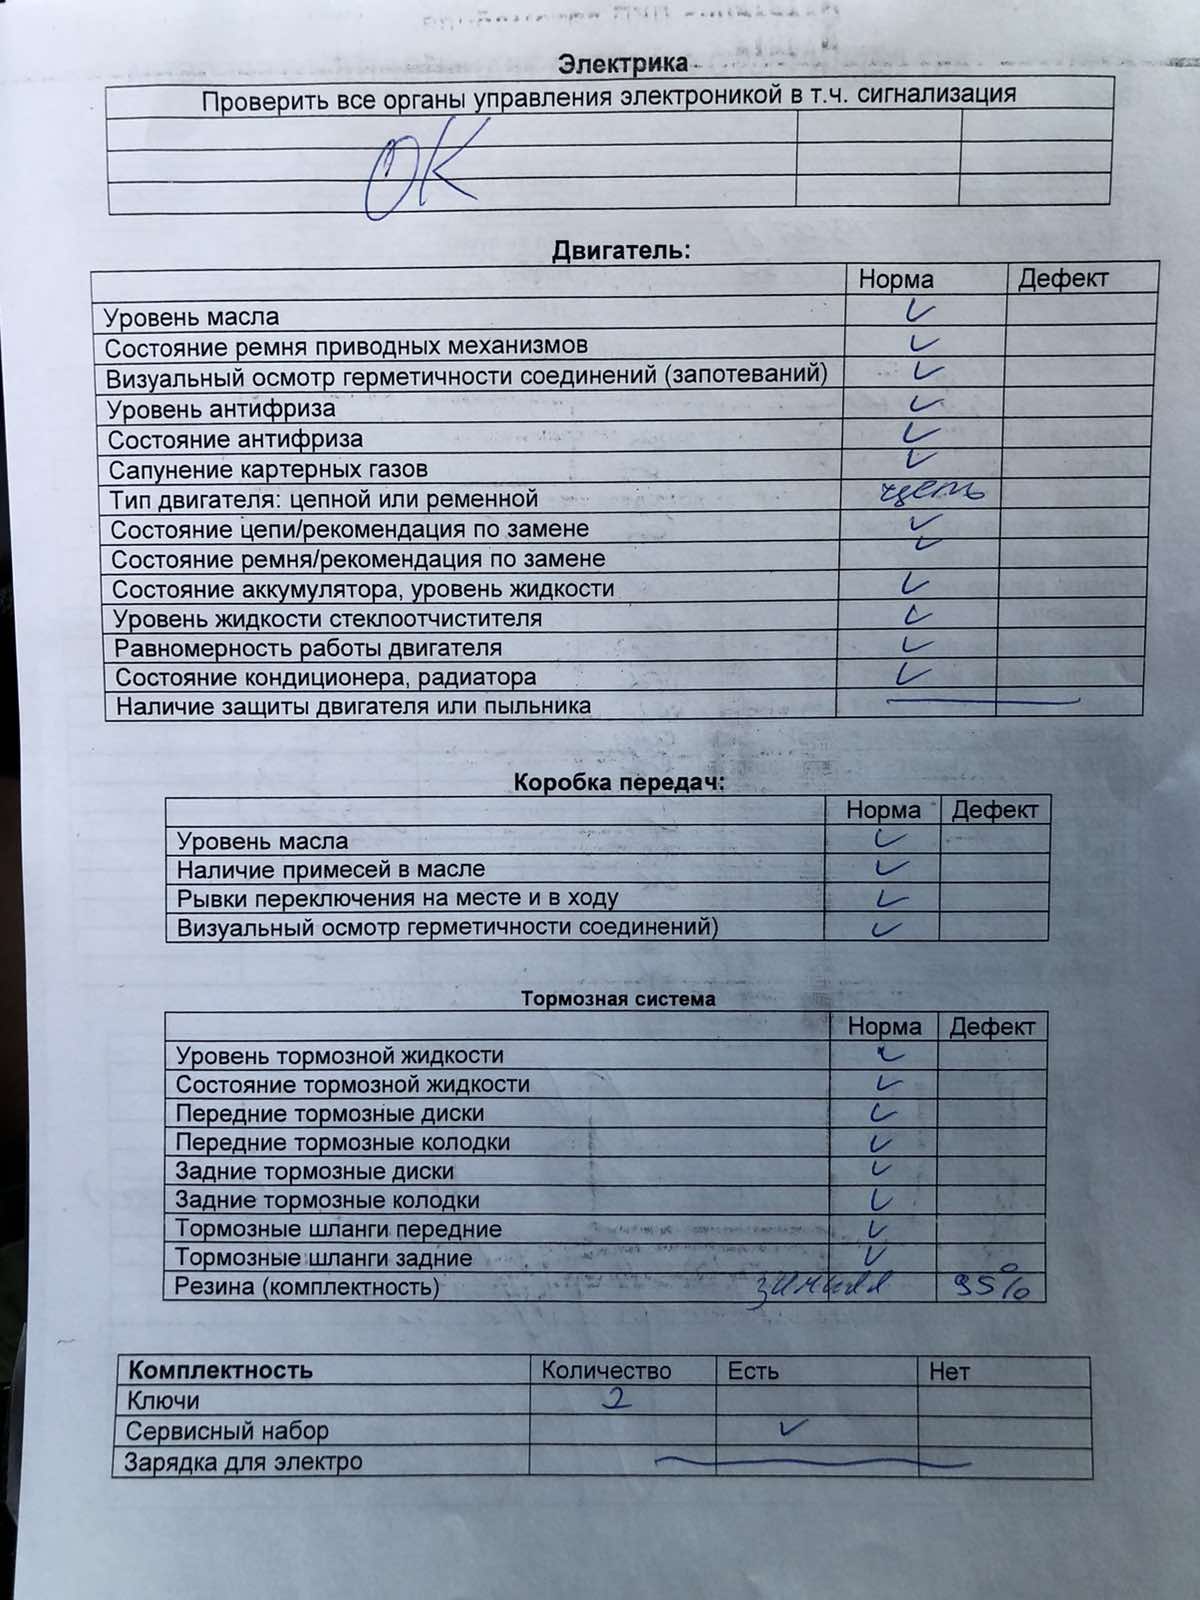 Электрика
Проверить все органы управления электроникой в т.ч. сигнализация
ОК
Двигатель:
Норма Дефект
Уровень масла ✓
Состояние ремня приводных механизмов ✓
Визуальный осмотр герметичности соединений (запотеваний) ✓
Уровень антифриза ✓
Состояние антифриза ✓
Сапунение картерных газов ✓
Тип двигателя: цепной или ременной цепь
Состояние цепи/рекомендация по замене ✓
Состояние ремня/рекомендация по замене ✓
Состояние аккумулятора, уровень жидкости ✓
Уровень жидкости стеклоотчистителя ✓
Равномерность работы двигателя ✓
Состояние кондиционера, радиатора ✓
Наличие защиты двигателя или пыльника —
Коробка передач:
Норма Дефект
Уровень масла ✓
Наличие примесей в масле ✓
Рывки переключения на месте и в ходу ✓
Визуальный осмотр герметичности соединений) ✓
Тормозная система
Норма Дефект
Уровень тормозной жидкости ✓
Состояние тормозной жидкости ✓
Передние тормозные диски ✓
Передние тормозные колодки ✓
Задние тормозные диски ✓
Задние тормозные колодки ✓
Тормозные шланги передние ✓
Тормозные шланги задние ✓
Резина (комплектность) зимняя 95%
Комплектность Количество Есть Нет
Ключи 2
Сервисный набор ✓
Зарядка для электро —